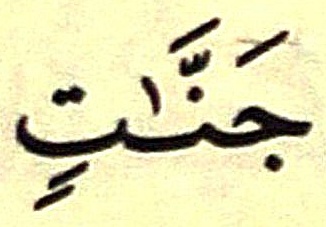 جَنَّٰتٍ